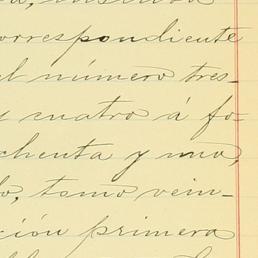 correspondiente
el número tres-
y cuatro á fo-
chenta y uno,
do, tomo vein-
ción primera